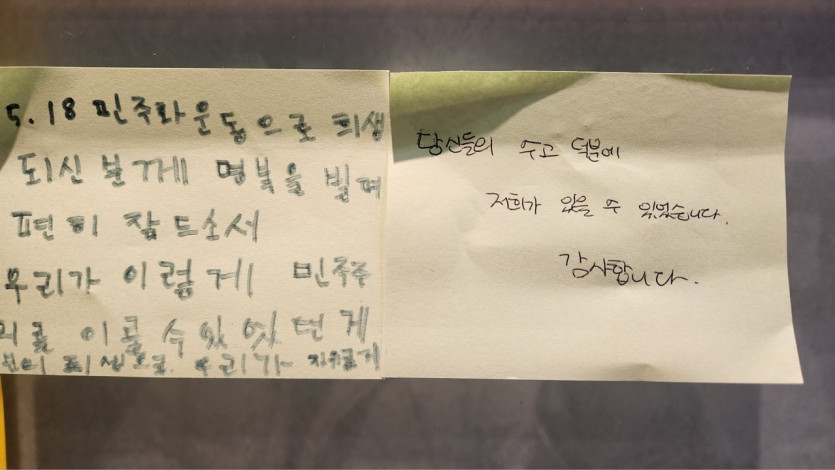 5.18 민주화운동으로 희생
되신 분께 명복을 빌며
편히 잠드소서
우리가 이렇게 민주주
의를 이룰 수 있엇던 게
희생으로 우리가
당신들의 수고 덕분에
저희가 있을 수 있었습니다.
감사합니다.